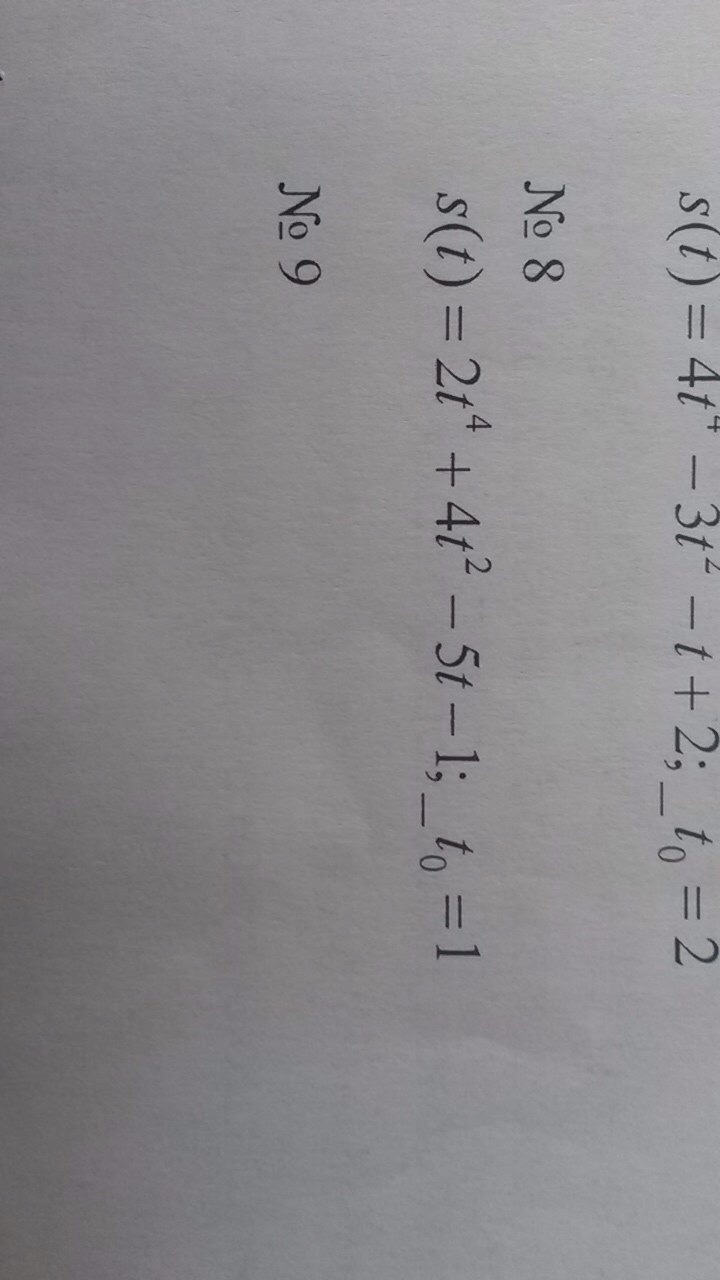 s(t) = 4t⁴ − 3t² − t + 2;_ t₀ = 2
№ 8
s(t) = 2t⁴ + 4t² − 5t − 1;_ t₀ = 1
№ 9